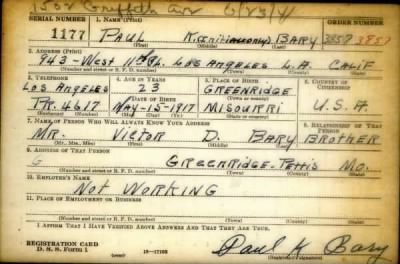 1502 Griffith Ave 6/23/41
SERIAL NUMBER 1. NAME (Print) ORDER NUMBER
1177 PAUL BARY 3857 3857
(First) (Middle) (Last)
2. ADDRESS (Print)
943-WEST 11th PL. LOS ANGELES L.A. CALIF
(Number and street or R. F. D. number) (Town) (County) (State)
3. TELEPHONE 4. AGE IN YEARS 5. PLACE OF BIRTH 6. COUNTRY OF CITIZENSHIP
LOS ANGELES 23 GREENRIDGE
(Town or county)
DATE OF BIRTH
PR. 4617 MAY-15-1917 MISOURRI U.S.A.
(Exchange) (Number) (Mo.) (Day) (Yr.) (State or country)
7. NAME OF PERSON WHO WILL ALWAYS KNOW YOUR ADDRESS 8. RELATIONSHIP OF THAT PERSON
MR. VICTOR D. BARY BROTHER
(Mr., Mrs., Miss) (First) (Middle) (Last)
9. ADDRESS OF THAT PERSON
G GREENRIDGE-PETTIS MO.
(Number and street or R. F. D. number) (Town) (County) (State)
10. EMPLOYER'S NAME
NOT WORKING
11. PLACE OF EMPLOYMENT OR BUSINESS
(Number and street or R. F. D. number) (Town) (County) (State)
I AFFIRM THAT I HAVE VERIFIED ABOVE ANSWERS AND THAT THEY ARE TRUE.
REGISTRATION CARD
D. S. S. Form 1 (over) 16-17105 Paul K Bary